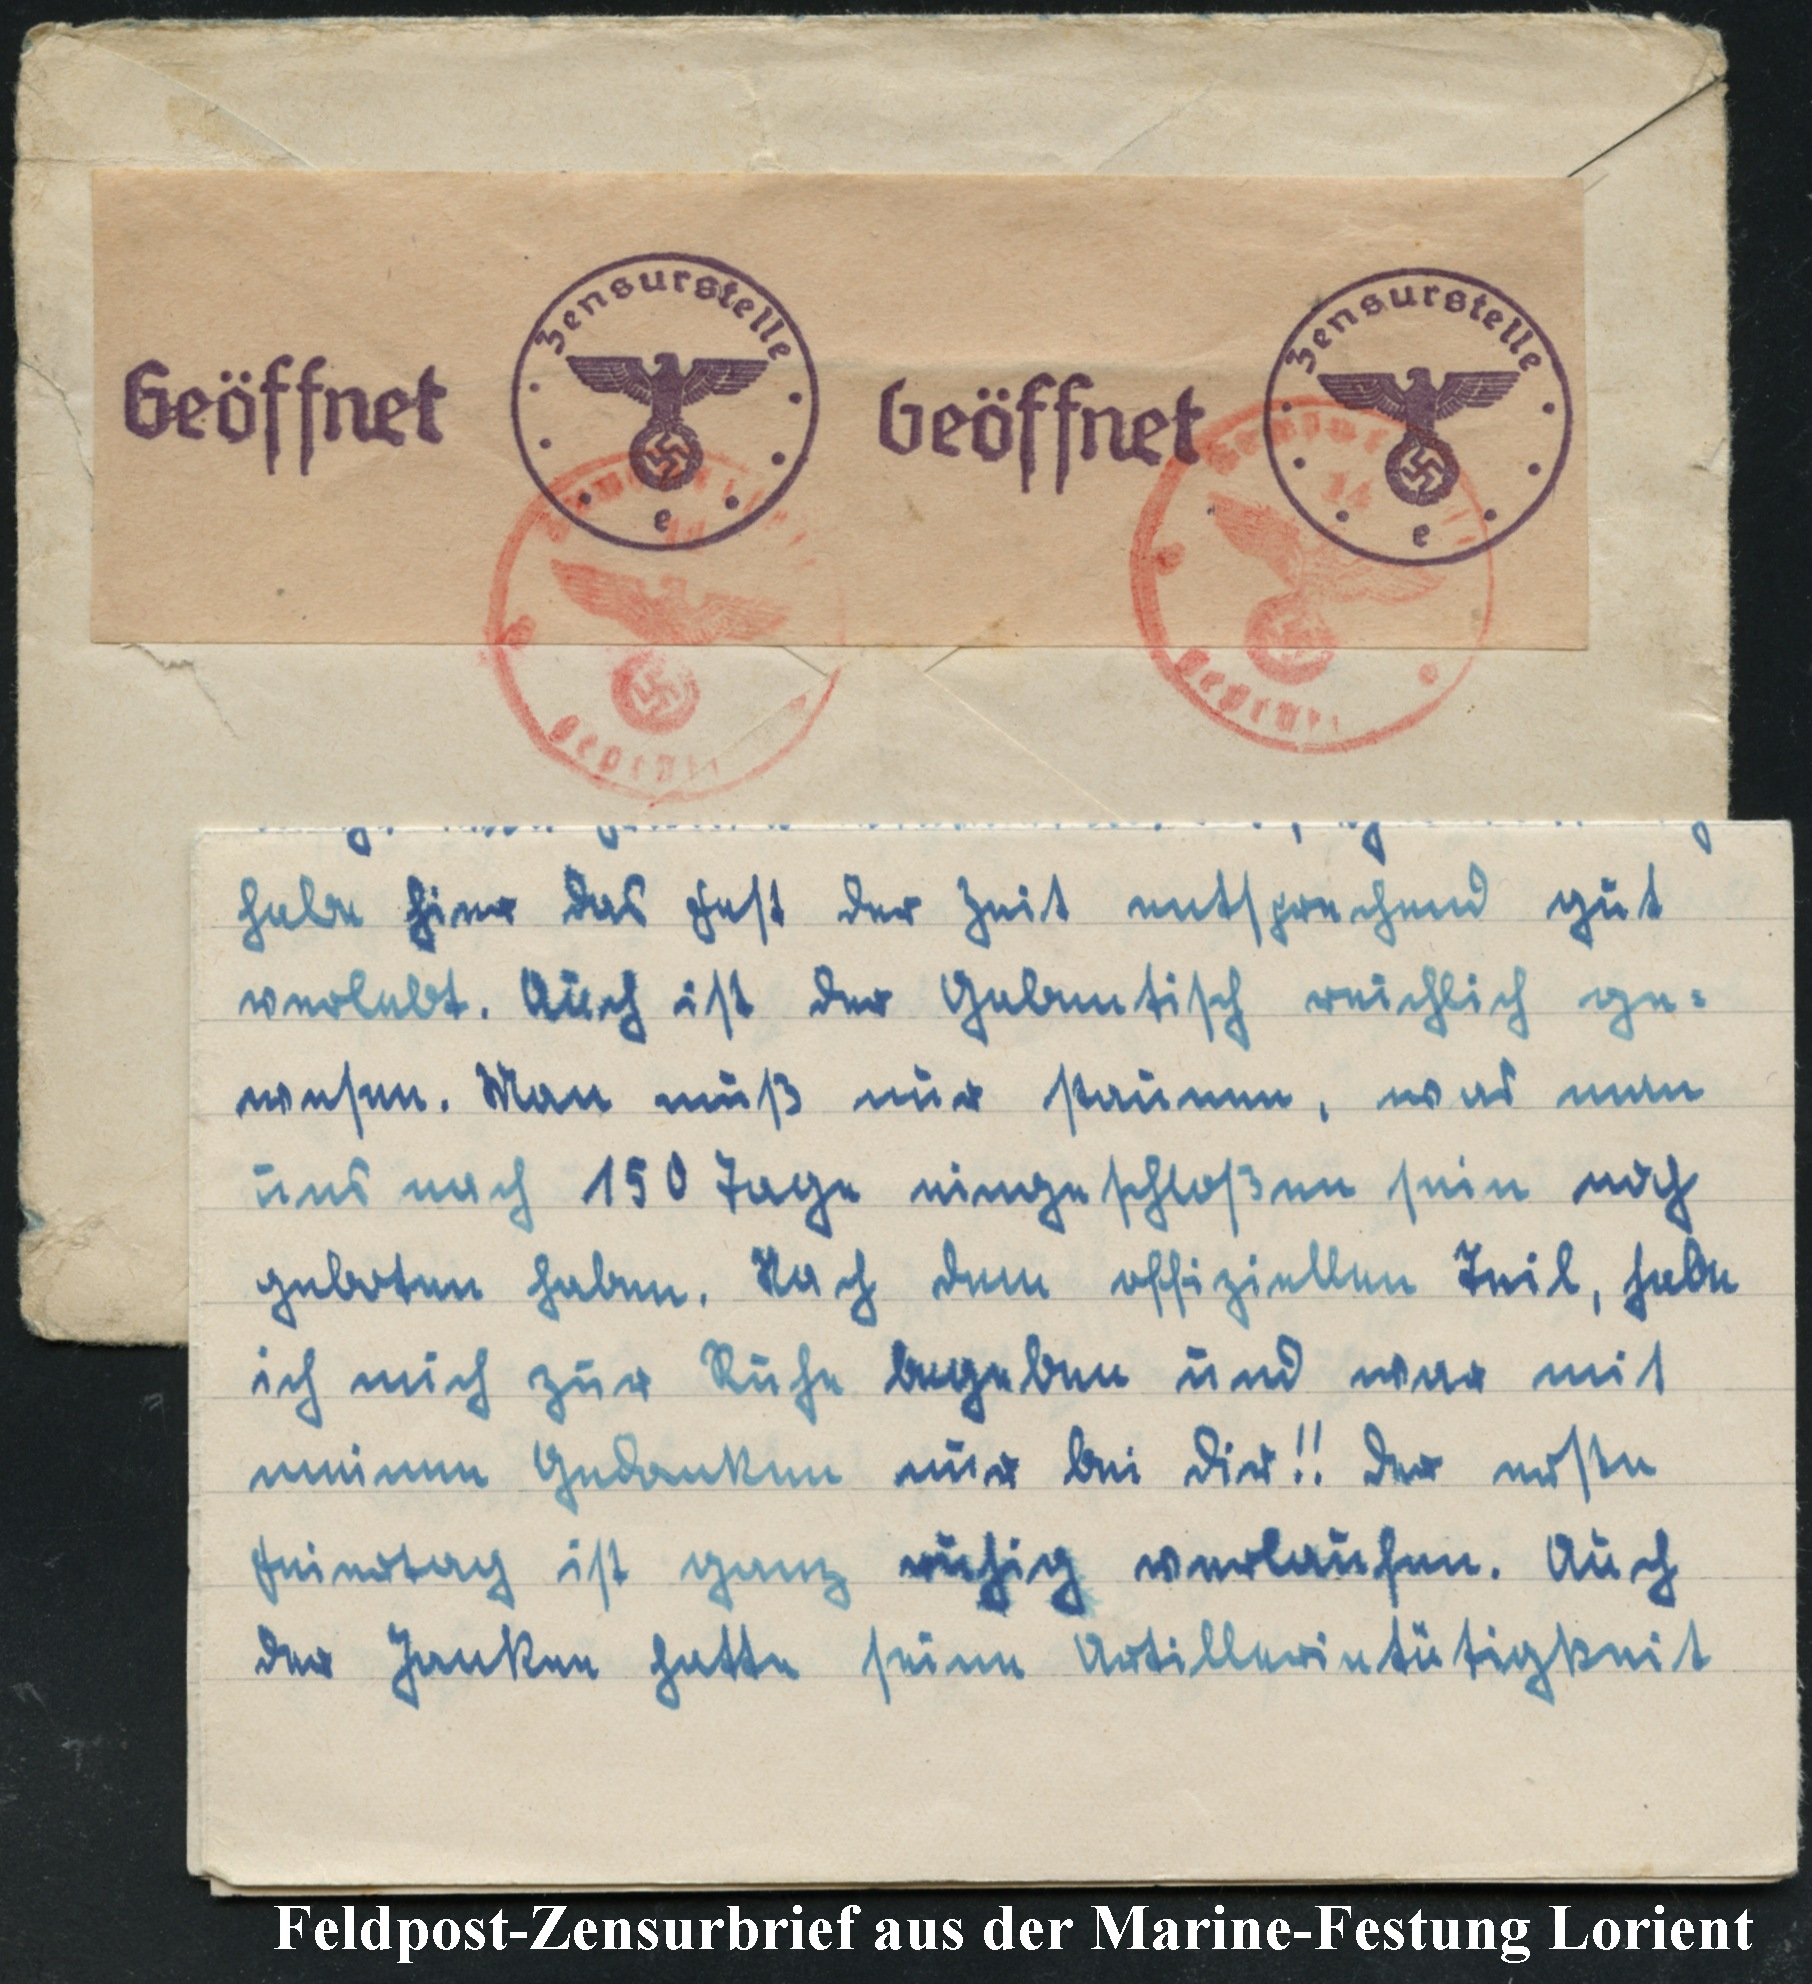 Zensurstelle
Zensurstelle
Geöffnet
Geöffnet
e
e
14
14
Geprüft
Geprüft
habe hier das Fest der Zeit entsprechend gut
verlebt. Auch ist der Gabentisch reichlich ge=
wesen. Man muß nur staunen, was man
uns nach 150 Tage eingeschloßen sein noch
geboten haben. Nach dem offiziellen Teil, habe
ich mich zur Ruhe begeben und war mit
meinen Gedanken nur bei Dir!! Der erste
Feiertag ist ganz ruhig verlaufen. Auch
der Janken hatte seine Artillerietätigkeit
Feldpost-Zensurbrief aus der Marine-Festung Lorient